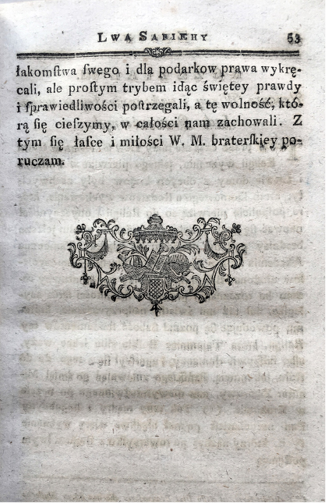 LWA SAPIEHY 63
łakomſtwa ſwego i dla podarkow prawa wykrę-
cali, ale proſtym trybem idąc świętey prawdy
i ſprawiedliwości poſtrzegali, a tę wolność, któ-
rą ſię cieſzymy, w całości nam zachowali. Z
tym ſię łaſce i miłości W. M. braterſkiey po-
ruczam.